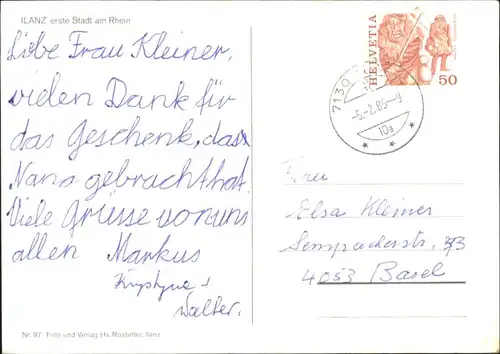 ILANZ erste Stadt am Rhein
Liebe Frau Kleiner,
vielen Dank für
das Geschenk, dass
Nana gebracht hat.
Viele Grüsse von uns
allen Markus
Krystyna +
Walter.
Nr. 97 Foto und Verlag Hs. Rostetter, Ilanz
HELVETIA
50
7130
-5.-2.85--9
10a
Frau
Elsa Kleiner
Sempacherstr. 33
4053 Basel